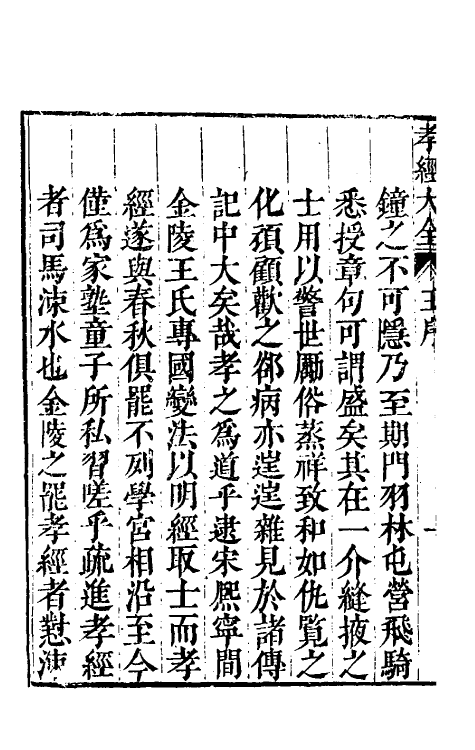 孝經大全 王序 一
鐘之不可隱乃至期門羽林屯營飛騎
悉授章句可謂盛矣其在一介縫掖之
士用以警世厲俗蒸祥致和如仇覽之
化頑顧歡之卻病亦遑遑雜見於諸傳
記中大矣哉孝之為道乎逮宋熈寧間
金陵王氏專國變法以明經取士而孝
經遂與春秋俱罷不列學宮相沿至今
僅為家塾童子所私習嗟乎疏進孝經
者司馬涑水也金陵之罷孝經者懟涑